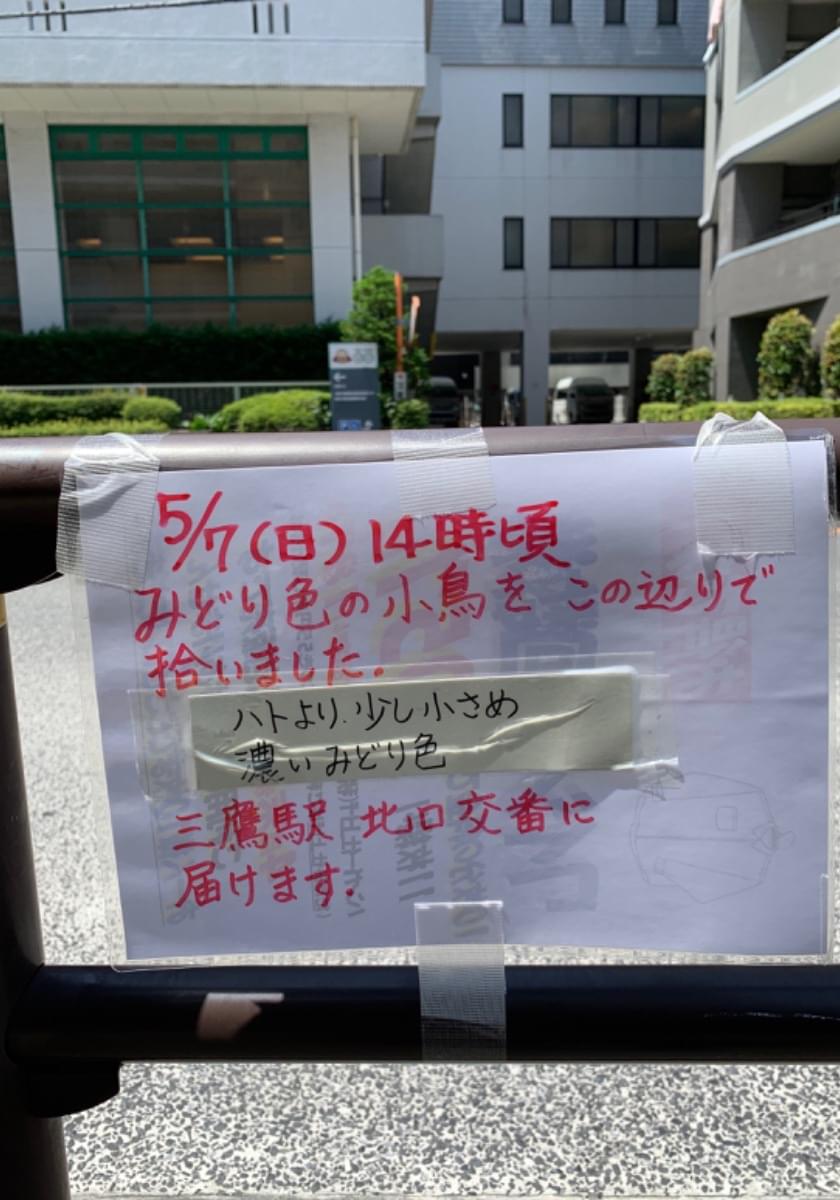 5/7(日)14時頃
みどり色の小鳥を この辺りで
拾いました.
ハトより.少し小さめ
濃いみどり色
三鷹駅 北口交番に
届けます.